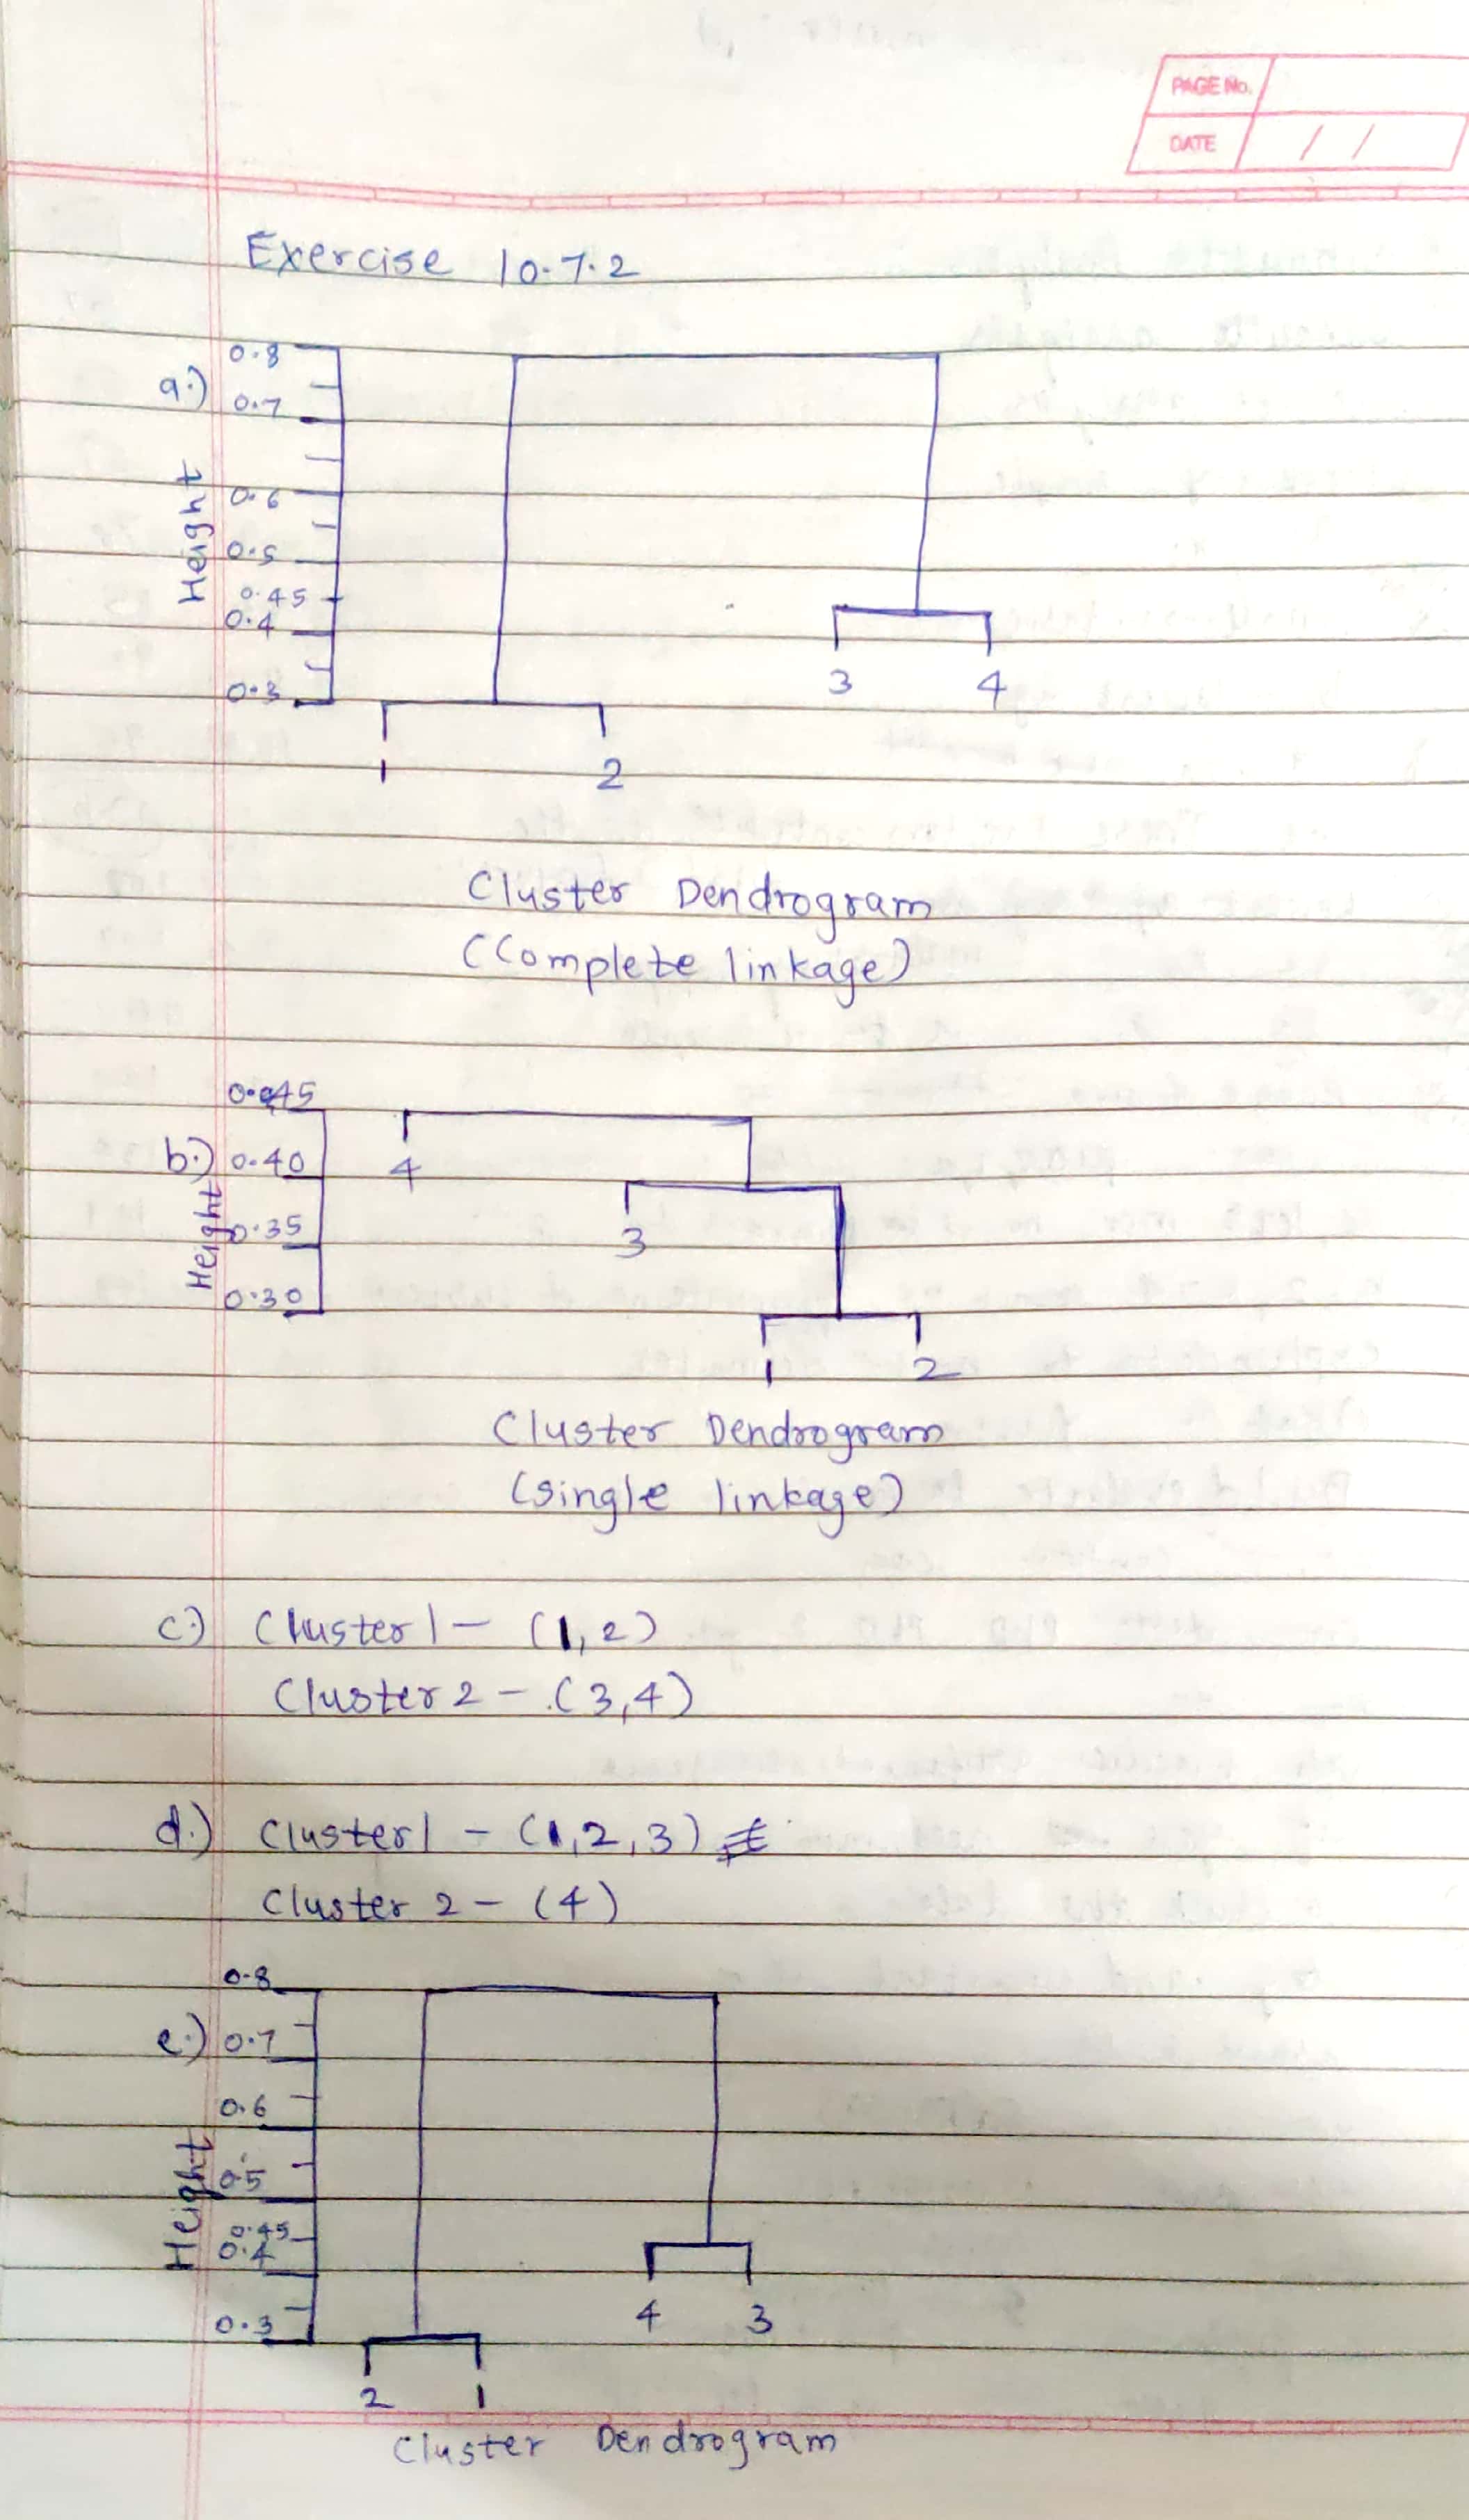 PAGE No.
DATE / /
Exercise 10.7.2
a.)
0.8
0.7
0.6
0.5
0.45
0.4
0.3
Height
3 4
1 2
Cluster Dendrogram
(Complete linkage)
b.)
0.45
0.40
0.35
0.30
Height
4
3
1 2
Cluster Dendrogram
(single linkage)
c.) Cluster 1 – (1, 2)
Cluster 2 – (3, 4)
d.) Cluster 1 – (1, 2, 3)
Cluster 2 – (4)
e.)
0.8
0.7
0.6
0.5
0.45
0.4
0.3
Height
4 3
2 1
Cluster Dendrogram